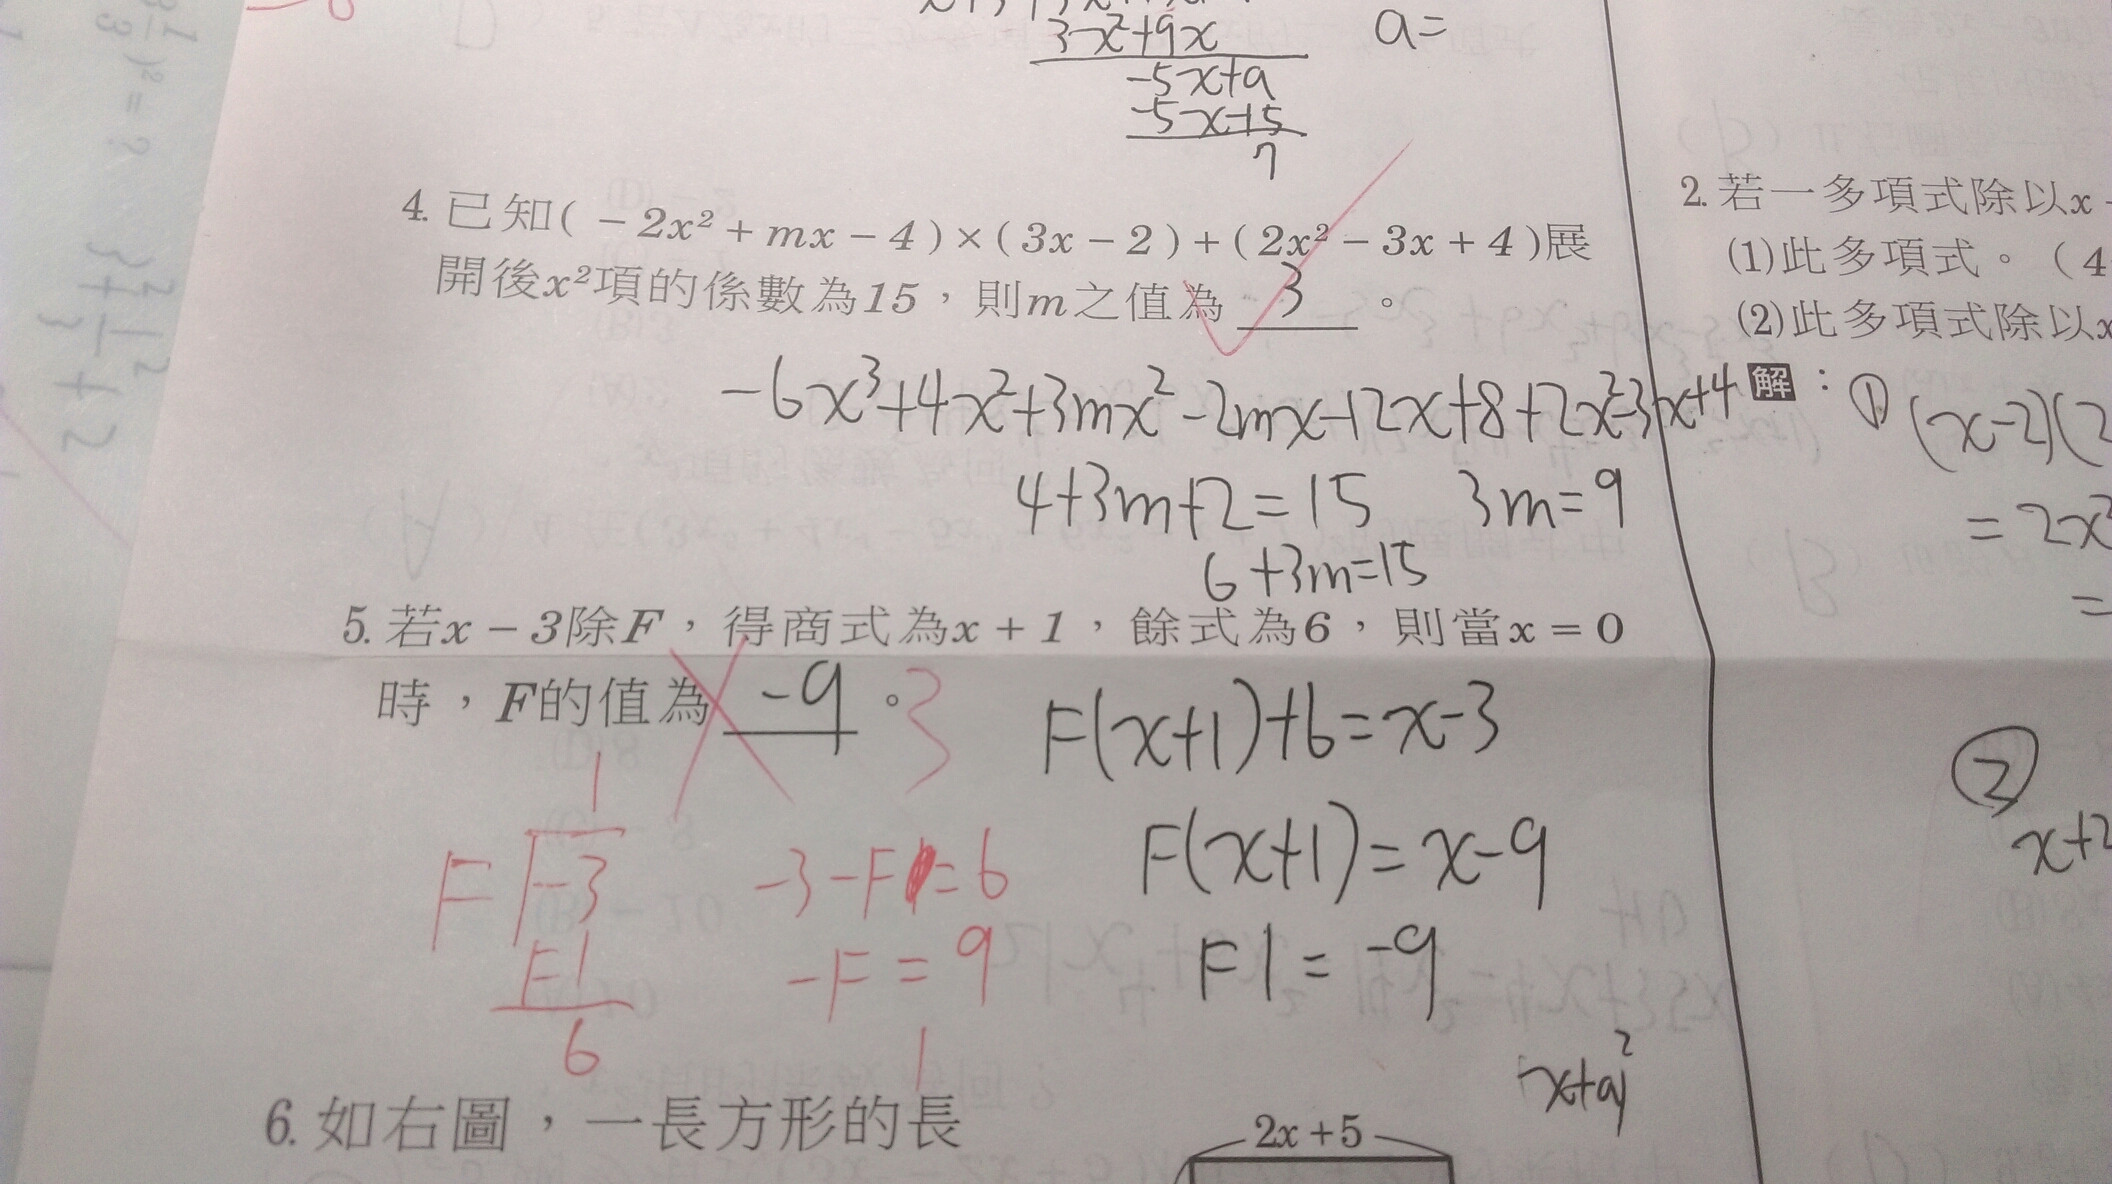 3x²+9x
a=
-5x+a
-5x-15
7
4. 已知(-2x²+mx-4)×(3x-2)+(2x²-3x+4)展
開後x²項的係數為15,則m之值為 3 。
-6x³+4x²+3mx²-2mx-12x+8+2x²-3x+4
4+3m+2=15 3m=9
6+3m=15
5. 若x-3除F,得商式為x+1,餘式為6,則當x=0
時,F的值為 -9 。3
F(x+1)+6=x-3
F(x+1)=x-9
F1=-9
1
F -3
F1
6
-3-F=6
-F=9
1
-x+a)²
6. 如右圖,一長方形的長
2x+5
2. 若一多項式除以x
(1)此多項式。(4
(2)此多項式除以x
解:① (x-2)(2
=2x²
=
②
x+2